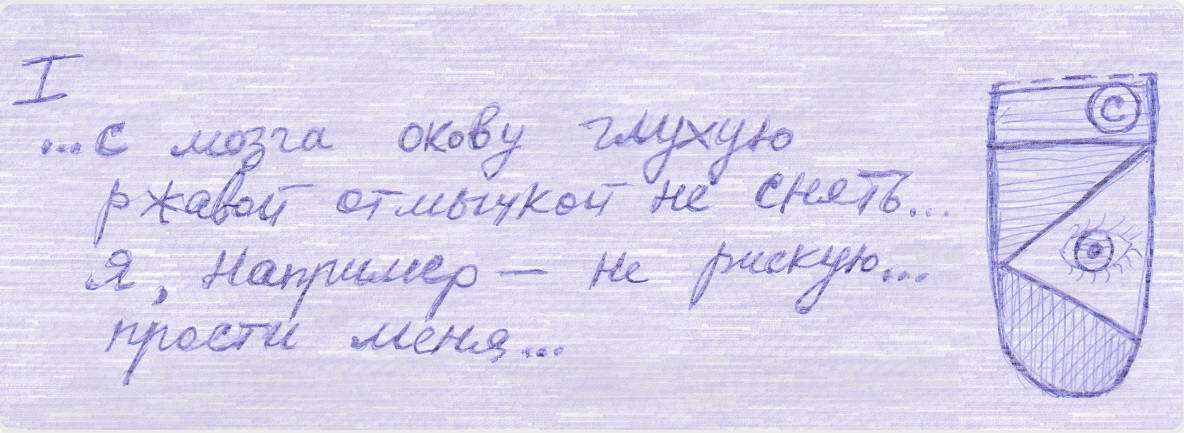 I
...с мозга окову глухую
ржавой отмычкой не снять...
я, например — не рискую...
прости меня...
©